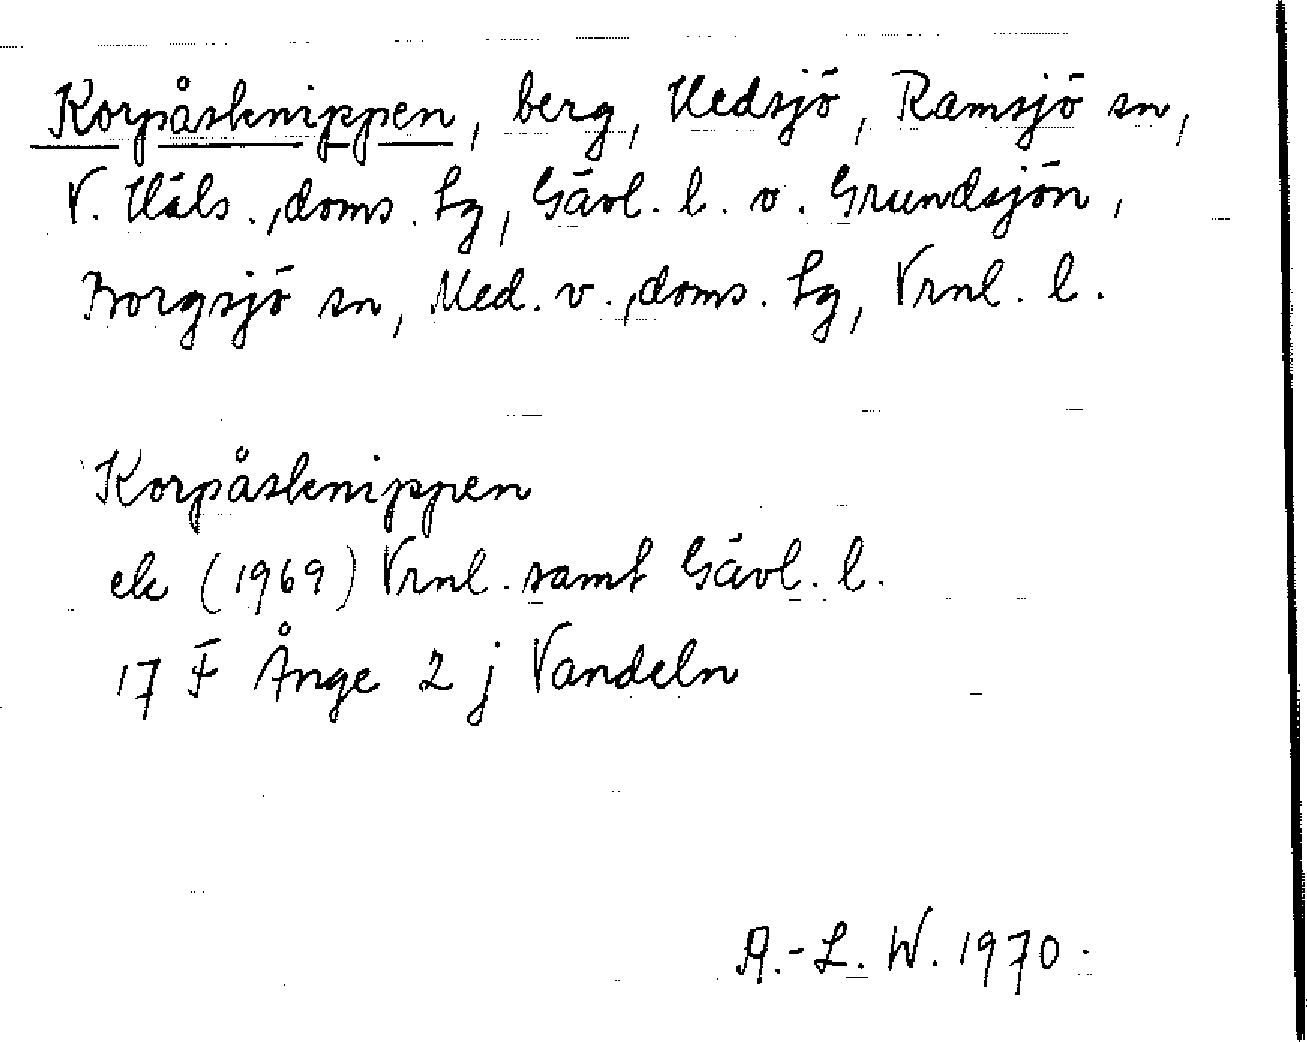 Korpåsknippen, berg, Hedsjö, Ramsjö sn,
V. Häls., doms. lg, Gävl. l. o. Grundsjön,
Borgsjö sn, Med. v., doms. lg, Vrnl. l.
Korpåsknippen
ek (1969) Vrnl. samt Gävl. l.
17 F Ånge 2 j Vandeln
A.-L. W. 1970.